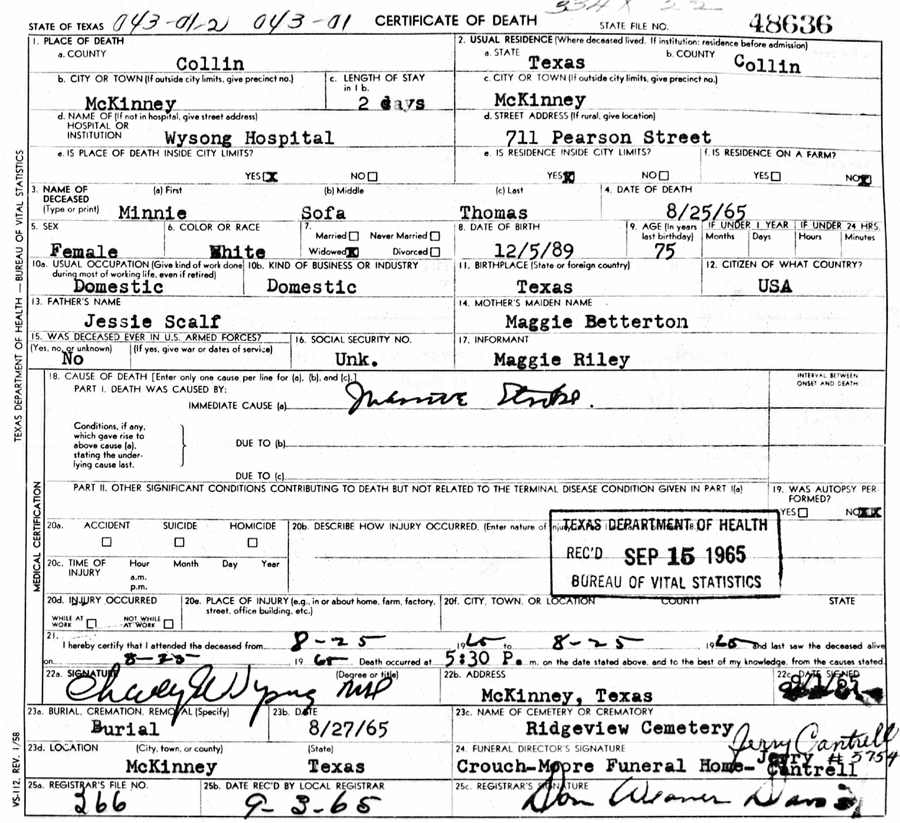 STATE OF TEXAS 043-01-2 043-01 CERTIFICATE OF DEATH STATE FILE NO. 48636
1. PLACE OF DEATH
a. COUNTY
Collin
2. USUAL RESIDENCE (Where deceased lived. If institution: residence before admission)
a. STATE b. COUNTY
Texas Collin
b. CITY OR TOWN (If outside city limits, give precinct no.)
McKinney
c. LENGTH OF STAY
in 1 b.
2 days
c. CITY OR TOWN (If outside city limits, give precinct no.)
McKinney
d. NAME OF (If not in hospital, give street address)
HOSPITAL OR
INSTITUTION Wysong Hospital
d. STREET ADDRESS (If rural, give location)
711 Pearson Street
e. IS PLACE OF DEATH INSIDE CITY LIMITS?
YES X NO
e. IS RESIDENCE INSIDE CITY LIMITS?
YES X NO
f. IS RESIDENCE ON A FARM?
YES NO X
3. NAME OF DECEASED
(Type or print)
(a) First (b) Middle (c) Last
Minnie Sofa Thomas
4. DATE OF DEATH
8/25/65
5. SEX
Female
6. COLOR OR RACE
White
7.
Married Never Married
Widowed X Divorced
8. DATE OF BIRTH
12/5/89
9. AGE (In years
last birthday)
75
IF UNDER 1 YEAR
Months Days
IF UNDER 24 HRS.
Hours Minutes
10a. USUAL OCCUPATION (Give kind of work done
during most of working life, even if retired)
Domestic
10b. KIND OF BUSINESS OR INDUSTRY
Domestic
11. BIRTHPLACE (State or foreign country)
Texas
12. CITIZEN OF WHAT COUNTRY?
USA
13. FATHER'S NAME
Jessie Scalf
14. MOTHER'S MAIDEN NAME
Maggie Betterton
15. WAS DECEASED EVER IN U.S. ARMED FORCES?
(Yes, no, or unknown) (If yes, give war or dates of service)
No
16. SOCIAL SECURITY NO.
Unk.
17. INFORMANT
Maggie Riley
18. CAUSE OF DEATH [Enter only one cause per line for (a), (b), and (c).]
PART I. DEATH WAS CAUSED BY:
IMMEDIATE CAUSE (a) Massive Stroke.
INTERVAL BETWEEN
ONSET AND DEATH
Conditions, if any,
which gave rise to
above cause (a),
stating the under-
lying cause last.
DUE TO (b)
DUE TO (c)
PART II. OTHER SIGNIFICANT CONDITIONS CONTRIBUTING TO DEATH BUT NOT RELATED TO THE TERMINAL DISEASE CONDITION GIVEN IN PART I(a)
19. WAS AUTOPSY PER-
FORMED?
YES NO XX
20a. ACCIDENT SUICIDE HOMICIDE
20b. DESCRIBE HOW INJURY OCCURRED. (Enter nature of
TEXAS DEPARTMENT OF HEALTH
REC'D SEP 15 1965
BUREAU OF VITAL STATISTICS
20c. TIME OF
INJURY
Hour Month Day Year
a.m.
p.m.
20d. INJURY OCCURRED
WHILE AT
WORK
NOT WHILE
AT WORK
20e. PLACE OF INJURY (e.g., in or about home, farm, factory,
street, office building, etc.)
20f. CITY, TOWN, OR LOCATION COUNTY STATE
21.
I hereby certify that I attended the deceased from 8-25 1965 to 8-25 1965 and last saw the deceased alive
on 8-25 1965 Death occurred at 5:30 P. m. on the date stated above, and to the best of my knowledge, from the causes stated.
22a. SIGNATURE (Degree or title)
22b. ADDRESS
McKinney, Texas
22c. DATE SIGNED
23a. BURIAL, CREMATION, REMOVAL (Specify)
Burial
23b. DATE
8/27/65
23c. NAME OF CEMETERY OR CREMATORY
Ridgeview Cemetery
23d. LOCATION (City, town, or county) (State)
McKinney Texas
24. FUNERAL DIRECTOR'S SIGNATURE
Jerry Cantrell
Crouch-Moore Funeral Home- Jerry Cantrell # 5754
25a. REGISTRAR'S FILE NO.
266
25b. DATE REC'D BY LOCAL REGISTRAR
9-3-65
25c. REGISTRAR'S SIGNATURE
Don Weaver Davis
TEXAS DEPARTMENT OF HEALTH — BUREAU OF VITAL STATISTICS
MEDICAL CERTIFICATION
VS-112, REV. 1/58